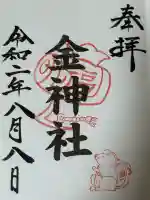 奉拝
金神社
令和二年八月八日